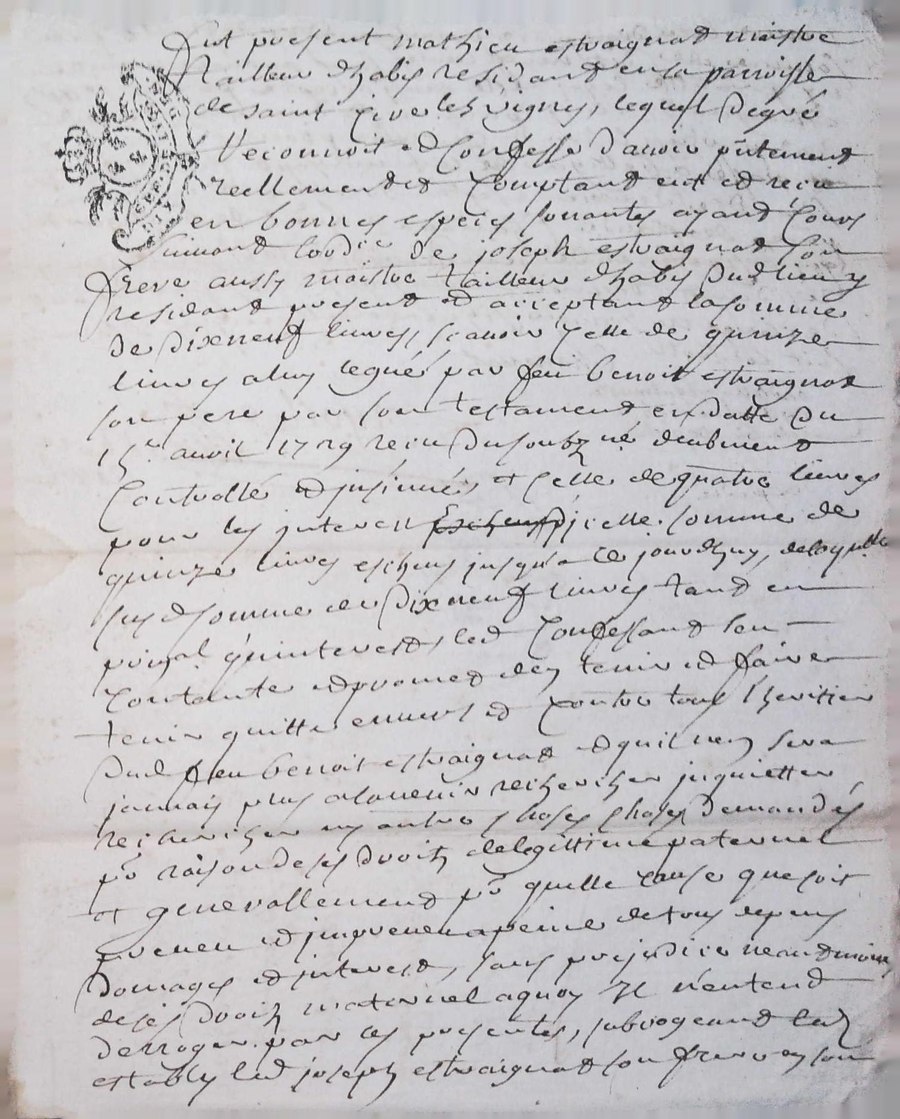 fut present mathieu estraignat maistre
tailleur dhabis residand en la parroisse
de saint Cire les vignes, lequel de gré
reconnoit et Confesse d'avoir pntement
reellement et Comptand eut et receu
en bonnes especes sonantes ayand Cours
de joseph estraignat son
frere aussy maistre tailleur dhabis dud lieu y
residand present et acceptand la somme
de dixneuf livres, scavoir Celle de quinze
livres a luy legué par feu benoit estraignat
son pere par son testament en datte du
15e avril 1729 receu du soubzné deubment
Controllé et insinué, et Celle de quatre livres
pour les interest d'icelle somme de
quinze livres escheus jusqu'a ce jourdhuy, de laquelle
susd somme de dixneuf livres tand en
prinpal qu'interest, led Confessand sen
Contante et promet den tenir et faire
tenir quitte envers et Contre tous heritiers
dud feu benoit estraignat et quil nen sera
jamais plus a lavenir recherchér inquietter
rechercher ny autre choses demandés
pr raison de ses droitz de legittime paternel
et generallement pr quelle Cause que soit
preveu et impreveu a peine de tous depens
domages et interest, sans prejudice neandmoins
de ses droitz maternel a quoy il n'entend
derroger par les presentes, subrogeand led
estably led joseph estraignat son frere en son